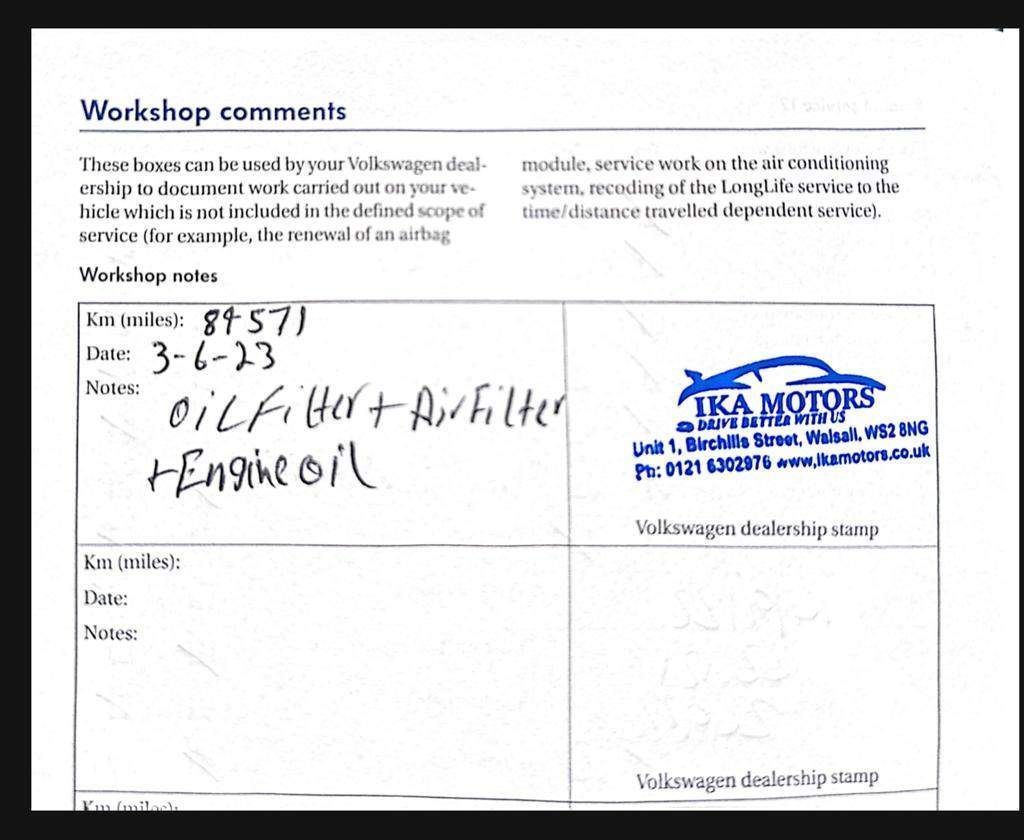 Workshop comments
These boxes can be used by your Volkswagen deal-
ership to document work carried out on your ve-
hicle which is not included in the defined scope of
service (for example, the renewal of an airbag
module, service work on the air conditioning
system, recoding of the LongLife service to the
time/distance travelled dependent service).
Workshop notes
Km (miles): 84571
Date: 3-6-23
Notes: OiL Filter + Air Filter
+ Engine oil
IKA MOTORS
DRIVE BETTER WITH US
Unit 1, Birchills Street, Walsall, WS2 8NG
Ph: 0121 6302976 www.ikamotors.co.uk
Volkswagen dealership stamp
Km (miles):
Date:
Notes:
Volkswagen dealership stamp
Km (miles):